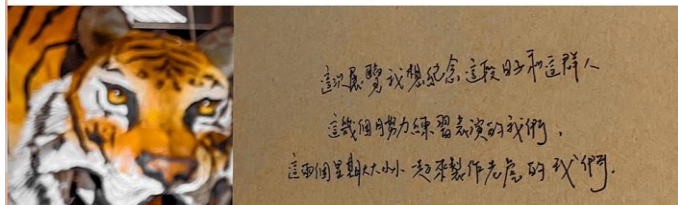 這次展覽我想紀念這段日子和這群人
這幾個月努力練習表演的我們，
這兩個星期大大小小一起來製作老虎的我們.